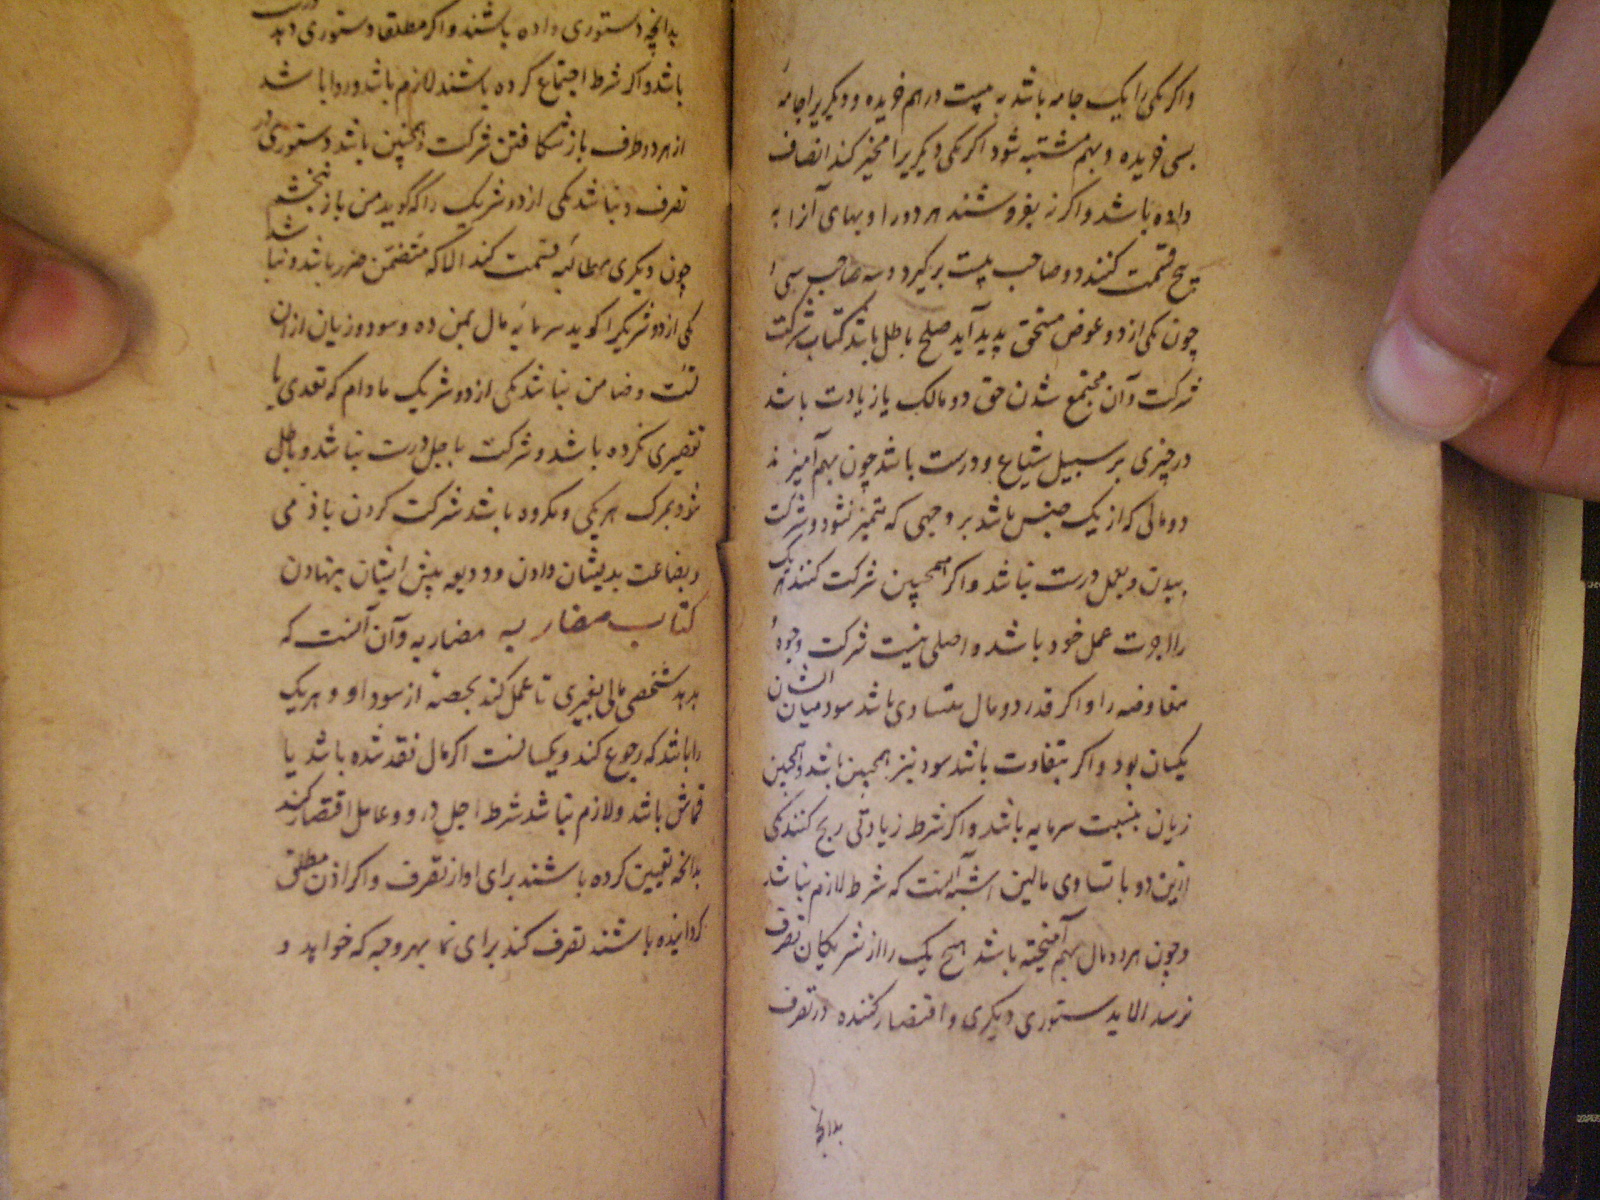 واکر یکی را یک جامه باشد به بیست درهم خریده و دیکریرا جامهٔ
بسی خریده و بهم مشتبه شود اکر یکی دیکریرا مخیر کند انصاف
داده باشد واکر نه بفروشند هر دو را و بهای آنرا به
پنج قسمت کنند دو صاحب بیست برکیرد و سه صاحب سی
چون یکی از دو عوض مستحق پدید آید صلح باطل باشد کتاب شرکت
شرکت وآن مجتمع شدن حق دو مالک یا زیادت باشد
در چیزی بر سبیل شیاع و درست باشد چون بهم آمیزند
دو مالی که از یک جنس باشد بر وجهی که متمیز نشود و شرکت
ببدن و بعمل درست نباشد واکر همچنین شرکت کنند هر یک
را اجرت عمل خود باشد و اصلی نیست شرکت وجوه
مفاوضه را و اکر قدر دو مال متساوی باشد سود میان ایشان
یکسان بود و اکر بتفاوت باشد سود نیز همچنین باشد و همچنین
زیان بنسبت سرمایه باشد و اکر شرط زیادتی ربح کنند یکی
ازین دو با تساوی مالین اشبه آنست که شرط لازم نباشد
وچون هر دو مال بهم آمیخته باشد هیچ یک را از شریکان تصرف
نرسد الا بدستوری دیکری و اقتصار کننده در تصرف
بدانچه
بدانچه دستوری داده باشند و اکر مطلقا دستوری دهد درست
باشد و اکر شرط اجتماع کرده باشند لازم باشد و روا باشد
از هر دو طرف باز شکافتن شرکت و همچنین باشد دستوری در
تصرف و نباشد یکی از دو شریک را که کوید من باز نبخشم
چون دیکری مطالبه قسمت کند الا که متضمن ضرر باشد و نباشد
یکی از دو شریکرا کوید سرمایه مال بمن ده و سود و زیان از آن
تست و ضامن نباشد یکی از دو شریک مادام که تعدی یا
تقصیری نکرده باشد و شرکت باجل درست نباشد و باطل
شود بمرک هر یکی و مکروه باشد شرکت کردن با ذمی
و بضاعت بدیشان دادن و ودیعه پیش ایشان بنهادن
کتاب مضاربه مضاربه وآن آنست که
بدهد شخصی مالی بغیری تا عمل کند بحصهٔ از سود او و هر یک
را باشد که رجوع کند و یکسانست اکر مال نقد شده باشد یا
قماش باشد و لازم نباشد شرط اجل درو و عامل اقتصار کند
بدانچه تعیین کرده باشند برای او از تصرف و اکر اذن مطلق
کردانیده باشند تصرف کند برای نما بهر وجه که خواهد و